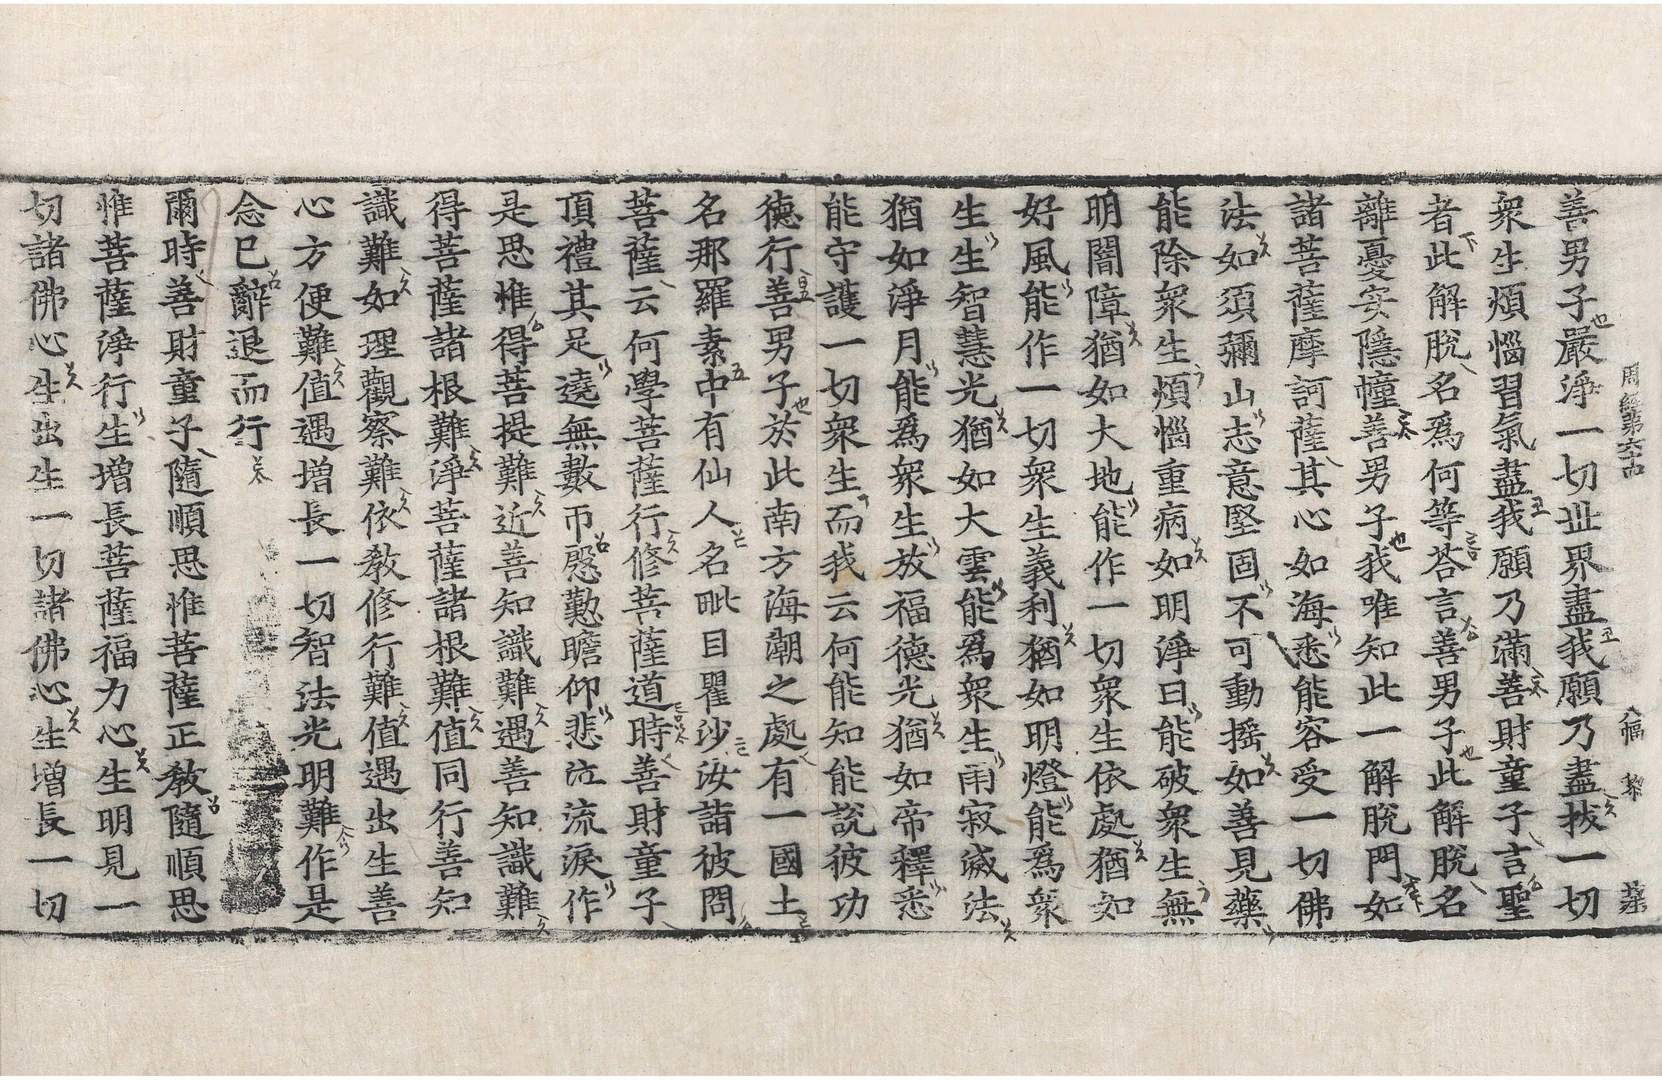 周經第六十四 八幅 黎
善男子嚴淨一切世界盡我願乃盡拔一切
衆生煩惱習氣盡我願乃滿善財童子言聖
者此解脫名爲何等荅言善男子此解脫名
離憂安隱幢善男子我唯知此一解脫門如
諸菩薩摩訶薩其心如海悉能容受一切佛
法如須彌山志意堅固不可動搖如善見藥
能除衆生煩惱重病如明淨日能破衆生無
明闇障猶如大地能作一切衆生依處猶如
好風能作一切衆生義利猶如明燈能爲衆
生生智慧光猶如大雲能爲衆生雨寂滅法
猶如淨月能爲衆生放福德光猶如帝釋悉
能守護一切衆生而我云何能知能說彼功
德行善男子於此南方海潮之處有一國土
名那羅素中有仙人名毗目瞿沙汝詣彼問
菩薩云何學菩薩行修菩薩道時善財童子
頂禮其足遶無數帀慇懃瞻仰悲泣流淚作
是思惟得菩提難近善知識難遇善知識難
得菩薩諸根難淨菩薩諸根難值同行善知
識難如理觀察難依敎修行難值遇出生善
心方便難值遇增長一切智法光明難作是
念已辭退而行
爾時善財童子隨順思惟菩薩正敎隨順思
惟菩薩淨行生增長菩薩福力心生明見一
切諸佛心生出生一切諸佛心生增長一切